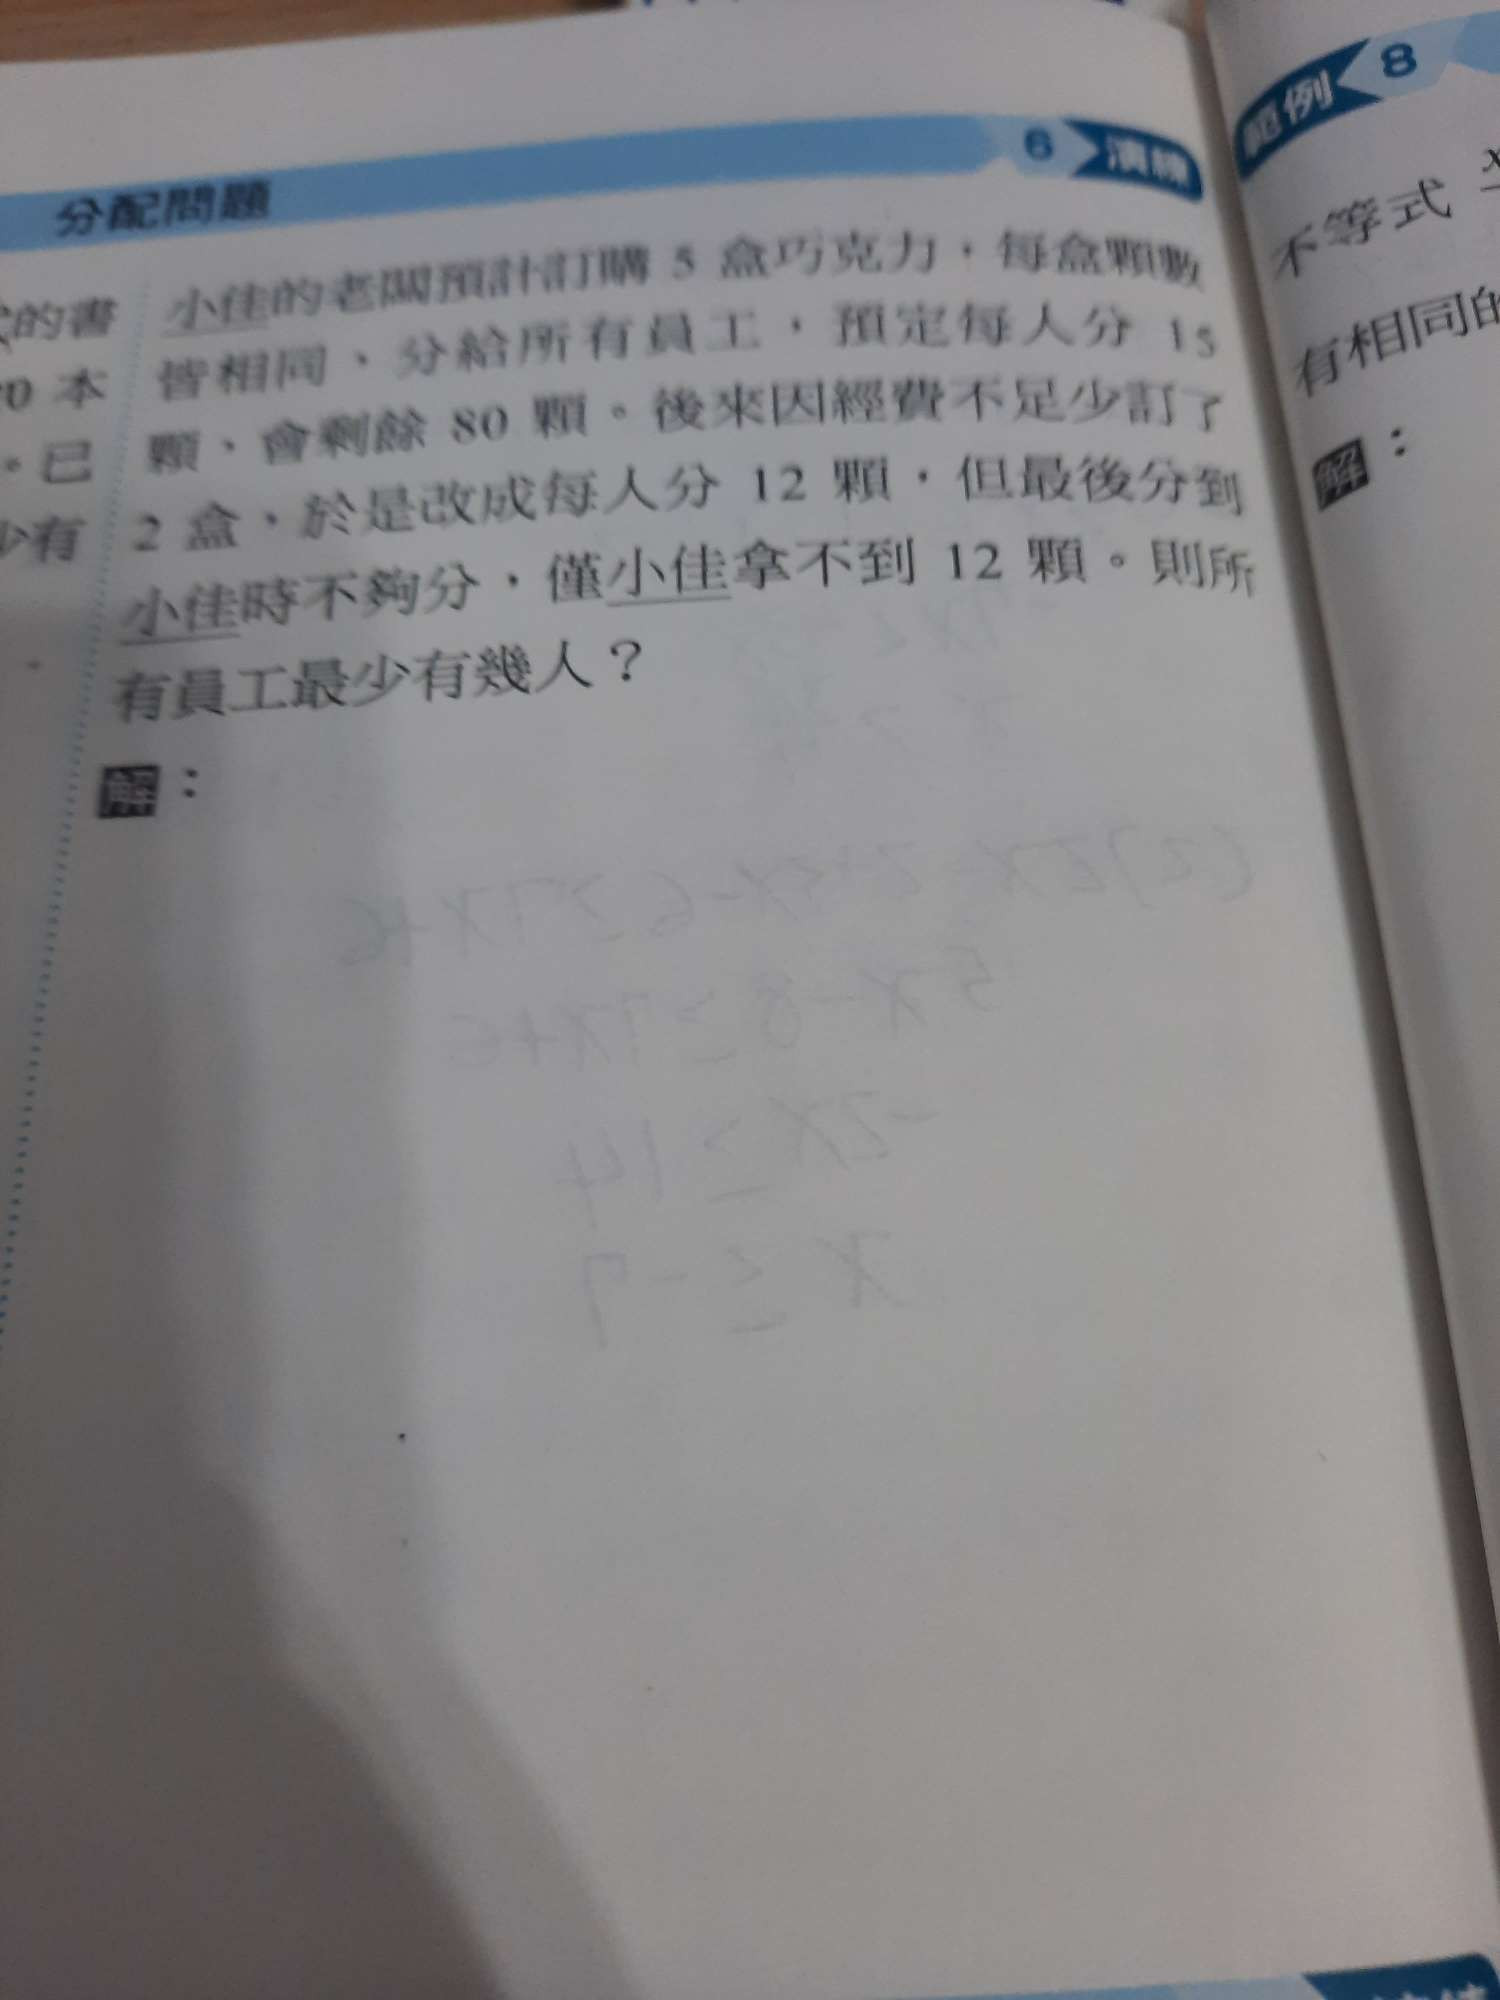 分配問題
6 演練
小佳的老闆預計訂購 5 盒巧克力,每盒顆數
皆相同、分給所有員工,預定每人分 15
顆、會剩餘 80 顆。後來因經費不足少訂了
2 盒,於是改成每人分 12 顆,但最後分到
小佳時不夠分,僅小佳拿不到 12 顆。則所
有員工最少有幾人?
解:
的書
本
。已
少有
範例 8
不等式
有相同的
解:
5x-8≥7x+6
-2x≥14
x≤-7